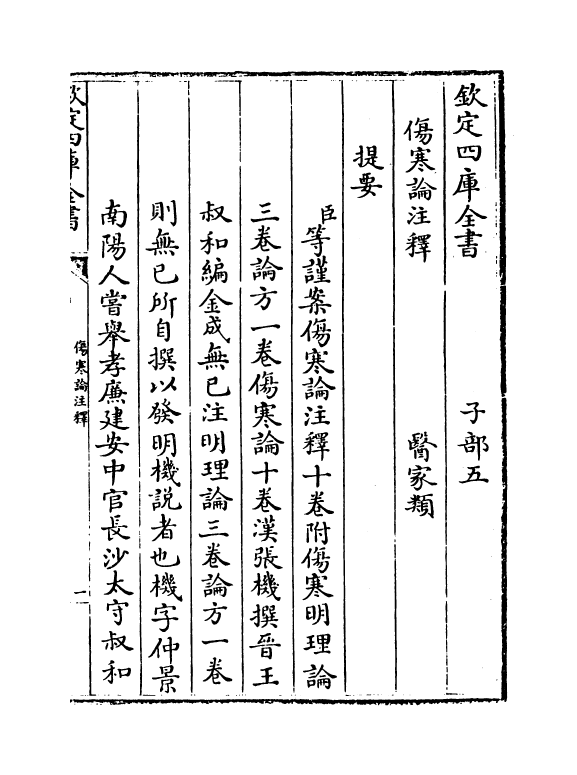 欽定四庫全書 子部五
傷寒論注釋 醫家類
提要
臣等謹案傷寒論注釋十卷附傷寒明理論
三卷論方一卷傷寒論十卷漢張機撰晉王
叔和編金成無已注明理論三卷論方一卷
則無已所自撰以發明機説者也機字仲景
南陽人嘗舉孝廉建安中官長沙太守叔和
欽定四庫全書 傷寒論注釋 一